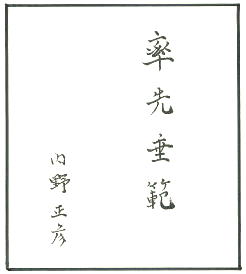 率先垂範
内野正彦